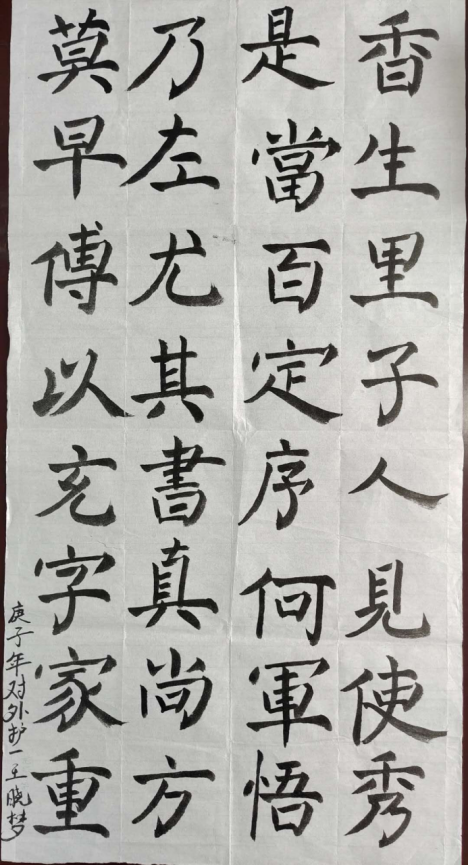 香生里子人見使秀
是當百定序何軍悟
乃左尤其書真尚方
莫早傅以充字家重
庚子年对外护一王晓梦